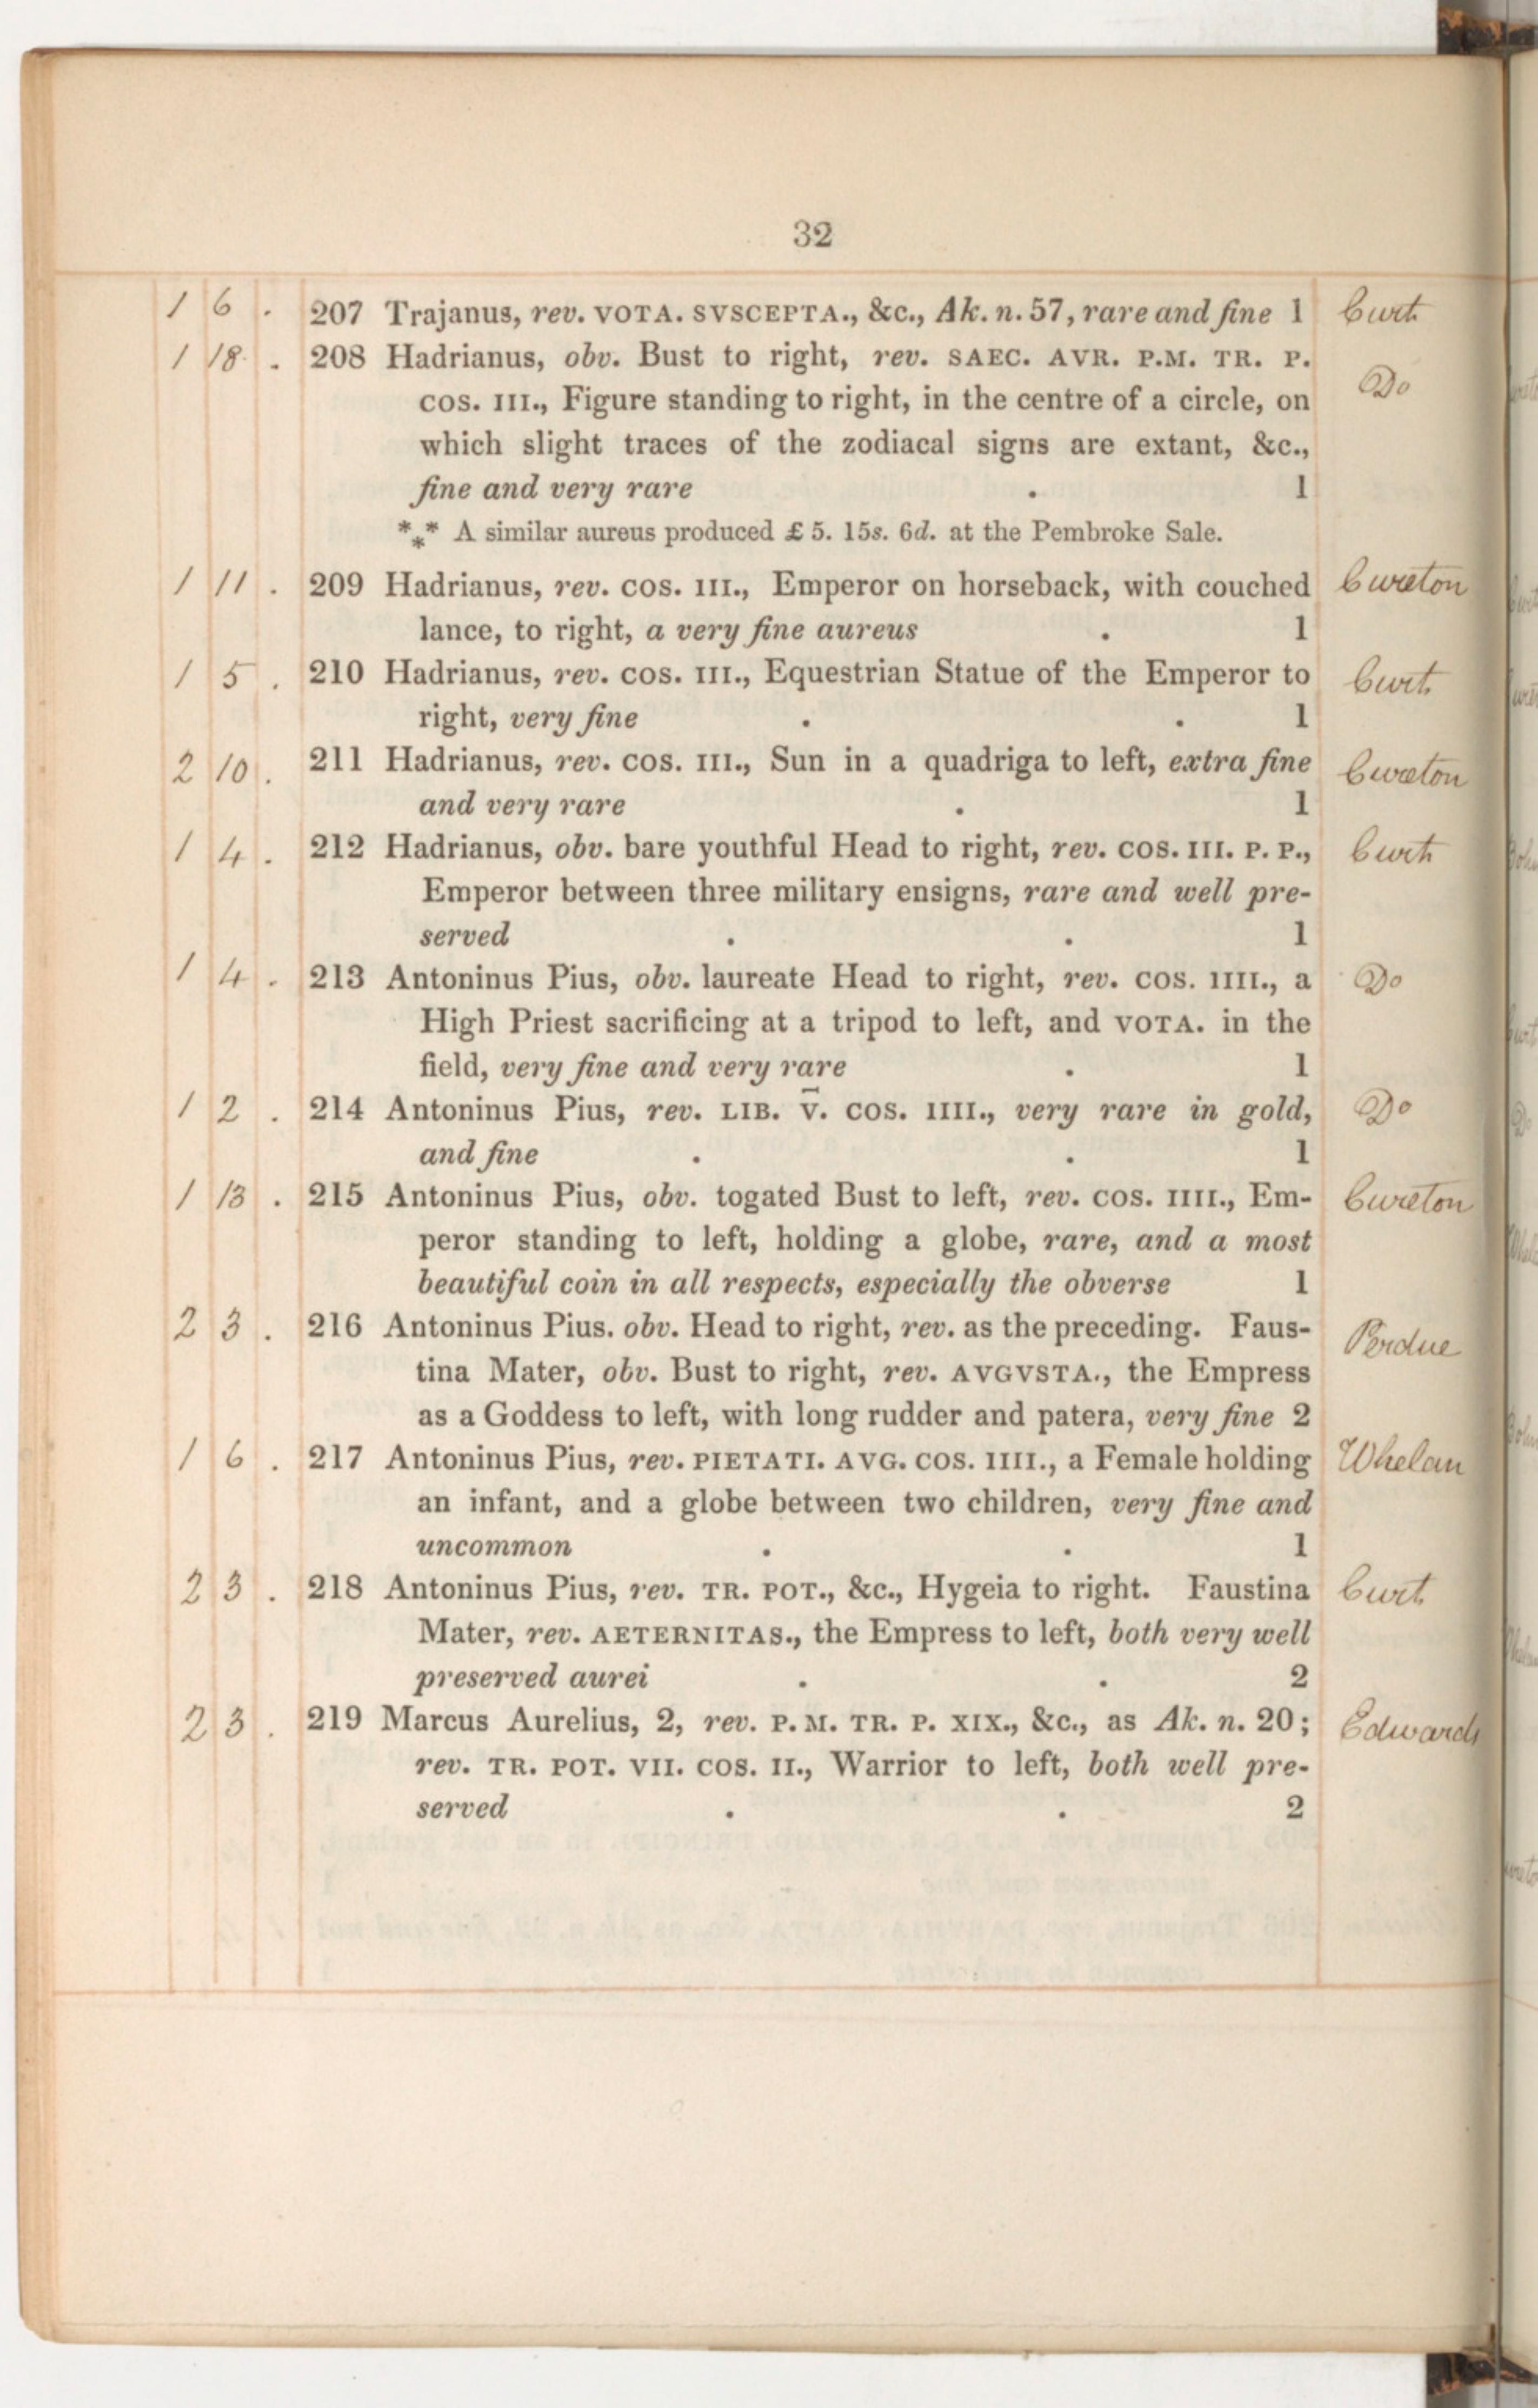 32
1 6 . 207 Trajanus, rev. VOTA. SVSCEPTA., &c., Ak. n. 57, rare and fine 1 Curt
1 18 . 208 Hadrianus, obv. Bust to right, rev. SAEC. AVR. P.M. TR. P.
COS. III., Figure standing to right, in the centre of a circle, on Do
which slight traces of the zodiacal signs are extant, &c.,
fine and very rare . 1
*** A similar aureus produced £5. 15s. 6d. at the Pembroke Sale.
1 11 . 209 Hadrianus, rev. COS. III., Emperor on horseback, with couched Cureton
lance, to right, a very fine aureus . 1
1 5 . 210 Hadrianus, rev. COS. III., Equestrian Statue of the Emperor to Curt
right, very fine . . 1
2 10 . 211 Hadrianus, rev. COS. III., Sun in a quadriga to left, extra fine Cureton
and very rare . 1
1 4 . 212 Hadrianus, obv. bare youthful Head to right, rev. COS. III. P. P., Curt
Emperor between three military ensigns, rare and well pre-
served . . 1
1 4 . 213 Antoninus Pius, obv. laureate Head to right, rev. COS. IIII., a Do
High Priest sacrificing at a tripod to left, and VOTA. in the
field, very fine and very rare . 1
1 2 . 214 Antoninus Pius, rev. LIB. V̄. COS. IIII., very rare in gold, Do
and fine . . 1
1 13 . 215 Antoninus Pius, obv. togated Bust to left, rev. COS. IIII., Em- Cureton
peror standing to left, holding a globe, rare, and a most
beautiful coin in all respects, especially the obverse 1
2 3 . 216 Antoninus Pius. obv. Head to right, rev. as the preceding. Faus- Perdue
tina Mater, obv. Bust to right, rev. AVGVSTA., the Empress
as a Goddess to left, with long rudder and patera, very fine 2
1 6 . 217 Antoninus Pius, rev. PIETATI. AVG. COS. IIII., a Female holding Whelan
an infant, and a globe between two children, very fine and
uncommon . . 1
2 3 . 218 Antoninus Pius, rev. TR. POT., &c., Hygeia to right. Faustina Curt
Mater, rev. AETERNITAS., the Empress to left, both very well
preserved aurei . . 2
2 3 . 219 Marcus Aurelius, 2, rev. P. M. TR. P. XIX., &c., as Ak. n. 20; Edwards
rev. TR. POT. VII. COS. II., Warrior to left, both well pre-
served . . 2